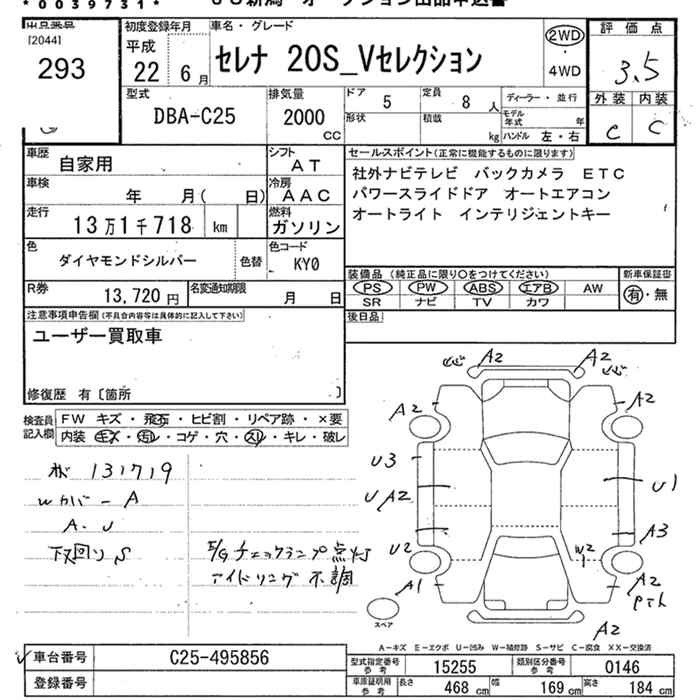 * 0039731 *
[2044]
293
初度登録年月
平成
22年 6月
車名・グレード
セレナ 20S_Vセレクション
2WD
・
4WD
評価点
3.5
外装 内装
C C
型式
DBA-C25
排気量
2000
CC
ドア 5
定員 8 人
形状
積載 kg
ディーラー・並行
モデル年式 年
ハンドル 左・右
車歴
自家用
シフト
AT
車検
年 月( 日)
冷房
AAC
走行
13万1千718 km
燃料
ガソリン
色
ダイヤモンドシルバー
色替
色コード
KY0
R券
13,720円
名変通知期限
月 日
セールスポイント(正常に機能するものに限ります)
社外ナビテレビ バックカメラ ETC
パワースライドドア オートエアコン
オートライト インテリジェントキー
装備品(純正品に限り○をつけてください)
PS PW ABS エアB AW
SR ナビ TV カワ
新車保証書
有・無
後日品
注意事項申告欄(不具合内容等は具体的に記入して下さい)
ユーザー買取車
修復歴 有〔箇所 〕
検査員
記入欄
FW キズ・飛石・ヒビ割・リペア跡・×要
内装 キズ・汚レ・コゲ・穴・スレ・キレ・破レ
131719
Wカバー A
A・U
下回りS
E/Gチェックランプ点灯
アイドリング不調
A2
A2
A2
A2
U3
U A2
U1
U2
A3
W2
A1
A2
A2
スペア
A-キズ E-エクボ U-凹み W-補修跡 S-サビ C-腐食 XX-交換済
車台番号
C25-495856
登録番号
型式指定番号
参考
15255
類別区分番号
参考
0146
車庫証明用
参考
長さ 468 cm 幅 169 cm 高さ 184 cm